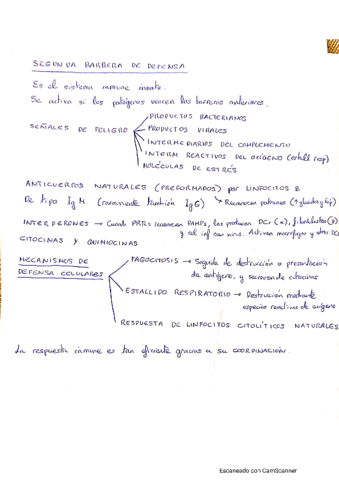 SEGUNDA BARRERA DE DEFENSA
Es el sistema inmune innato.
Se activa si los patógenos vencen las barreras anteriores.
SEÑALES DE PELIGRO
PRODUCTOS BACTERIANOS
PRODUCTOS VIRALES
INTERMEDIARIOS DEL COMPLEMENTO
INTERM REACTIVOS DEL OXÍGENO (estall resp)
MOLÉCULAS DE ESTRÉS
ANTICUERPOS NATURALES (PREFORMADOS) por LINFOCITOS B
De tipo IgM (raramente también IgG) → Reconocen patrones
INTERFERONES → Cuando PRRs reconocen PAMPs, los producen DCs (α), fibroblastos (β)
y cel inf con virus. Activan macrófagos y otras DC
CITOCINAS Y QUIMIOCINAS
MECANISMOS DE DEFENSA CELULARES
FAGOCITOSIS → Seguida de destrucción o presentación
de antígeno, y secreción de citocinas
ESTALLIDO RESPIRATORIO → Destrucción mediante
especies reactivas de oxígeno
RESPUESTA DE LINFOCITOS CITOLÍTICOS NATURALES
La respuesta inmune es tan eficiente gracias a su COORDINACIÓN.
Escaneado con CamScanner